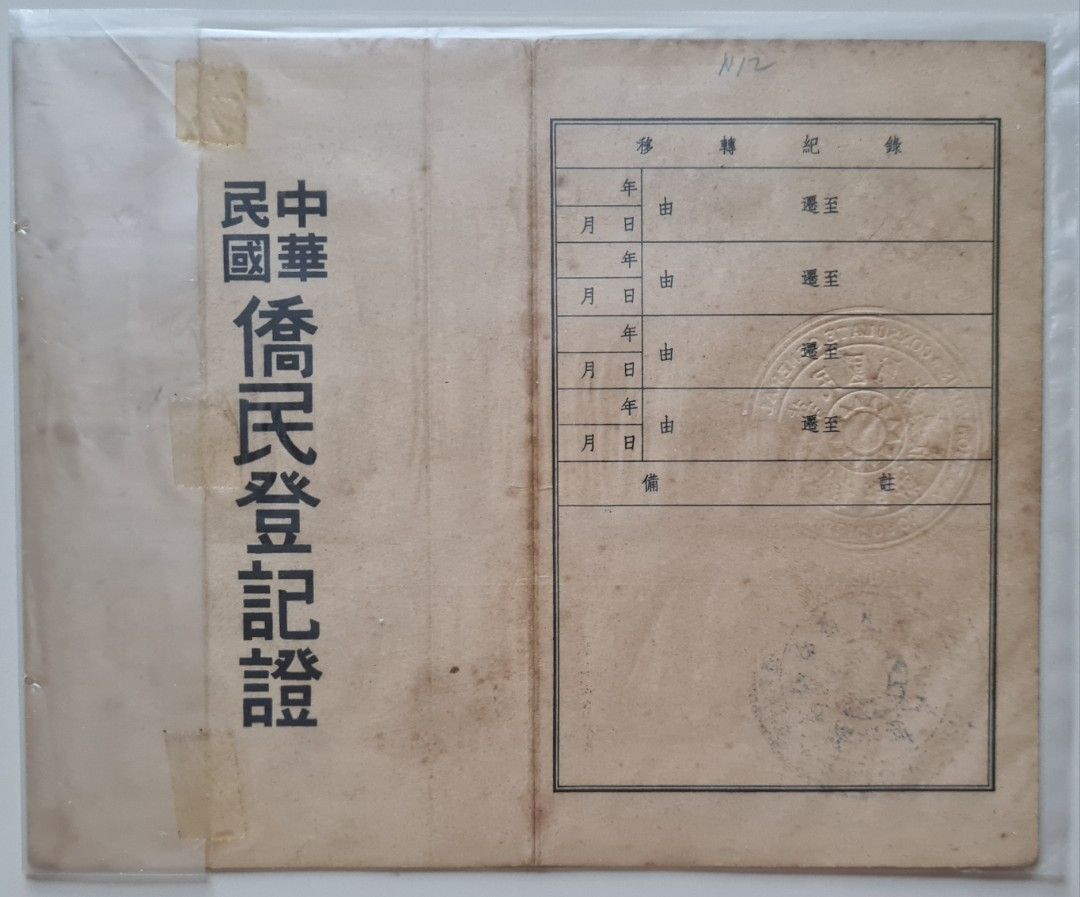 中華民國僑民登記證
N12
移轉紀錄
年
月 日
由 遷至
年
月 日
由 遷至
年
月 日
由 遷至
年
月 日
由 遷至
備註